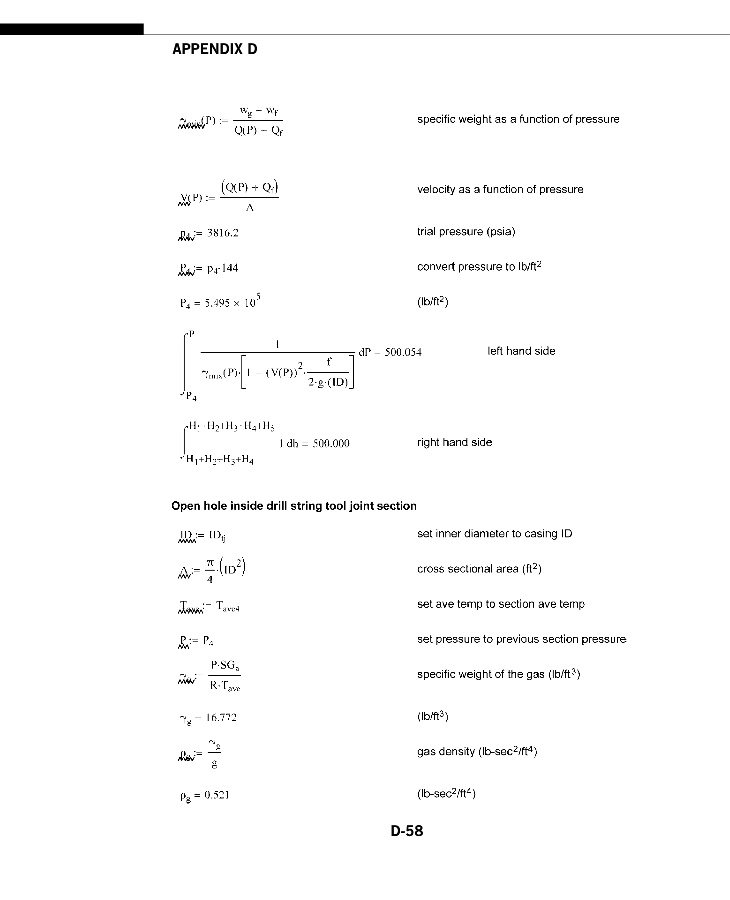 APPENDIX D
γmix(P) := (wg + wf) / (Q(P) + Qf) specific weight as a function of pressure
V(P) := (Q(P) + Qf) / A velocity as a function of pressure
p4 := 3816.2 trial pressure (psia)
P4 := p4·144 convert pressure to lb/ft²
P4 = 5.495 × 10⁵ (lb/ft²)
∫P4^P 1 / (γmix(P)·[1 − (V(P))²·f / (2·g·(ID))]) dP = 500.054 left hand side
∫H1+H2+H3+H4^H1+H2+H3+H4+H5 1 dh = 500.000 right hand side
Open hole inside drill string tool joint section
ID := IDtj set inner diameter to casing ID
A := π/4·(ID²) cross sectional area (ft²)
Tave := Tave4 set ave temp to section ave temp
P := P4 set pressure to previous section pressure
γg := P·SGa / (R·Tave) specific weight of the gas (lb/ft³)
γg = 16.772 (lb/ft³)
ρg := γg / g gas density (lb-sec²/ft⁴)
ρg = 0.521 (lb-sec²/ft⁴)
D-58